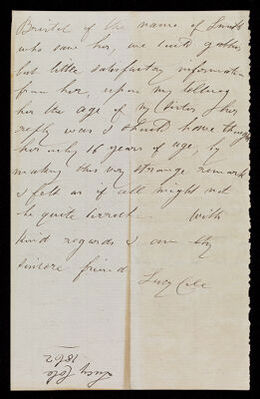 Bristol of the name of Smith
who saw her, we could gather
but little satisfactory information
from her, upon my telling
her the age of my sister her
reply was I should have thought
her only 16 years of age, by
making this very strange remark
I felt as if all might not
be quite correct. With
kind regards I am thy
sincere friend
Lucy Cole
Lucy Cole
1862